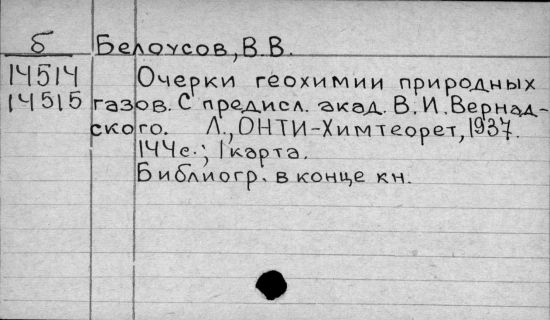 б Белоусов, В.В.
14514 Очерки геохимии природных
14515 газов. С предисл. акад. В.И. Вернад-
ского. Л., ОНТИ-Химтеорет, 1937.
144с.; 1 карта.
Библиогр. в конце кн.